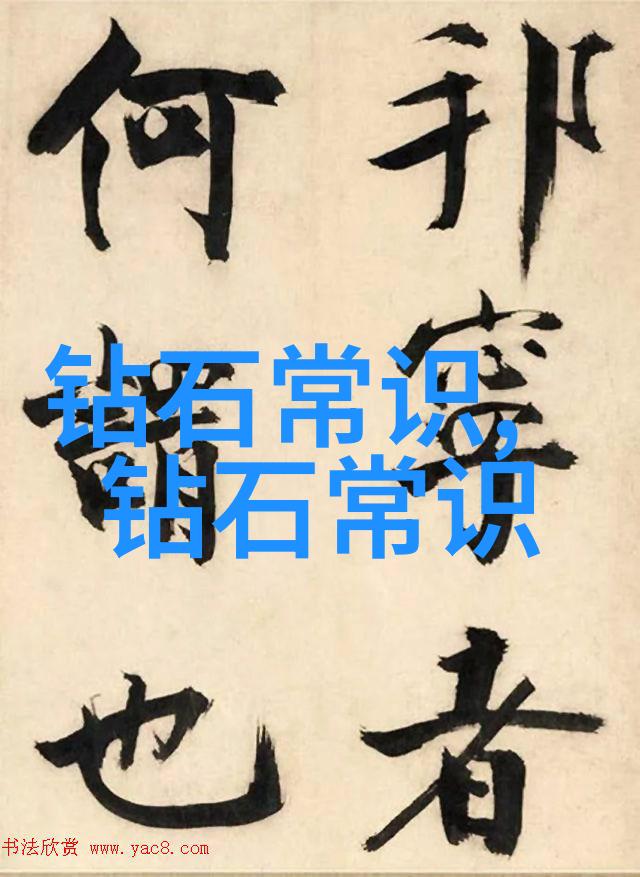 邦寧者
何謂也
钻石常识,
钻石常识
书法欣赏 www.yac8.com